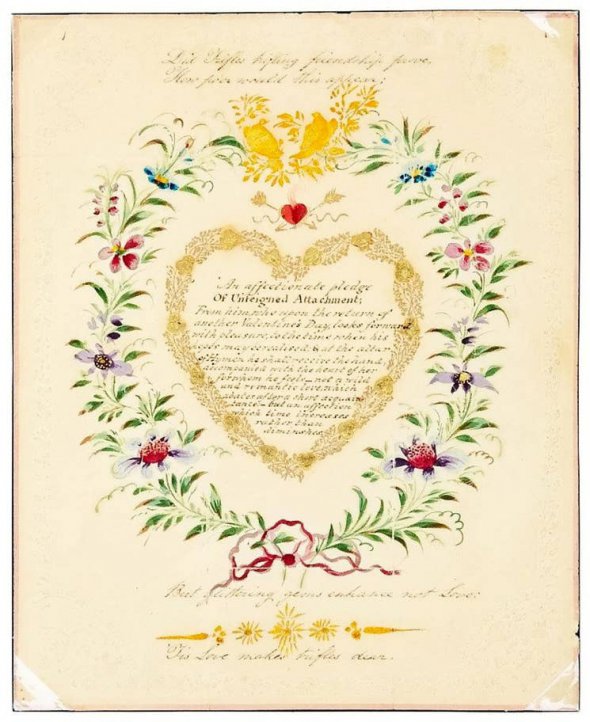 Did Trifles trifling friendship prove,
How poor would this appear;
An affectionate pledge
Of Unfeigned Attachment;
From him who upon the return of
another Valentine's Day, looks forward
with pleasure, to the time when his
hopes may be realised, & at the altar
of Hymen he shall receive the hand
accompanied with the heart of her
for whom he feels not a wild
and romantic love, which
fades after a short acquain
tance but an affection
which time increases
rather than
diminishes
But glittering gems enhance not Love:
'Tis Love makes trifles dear.